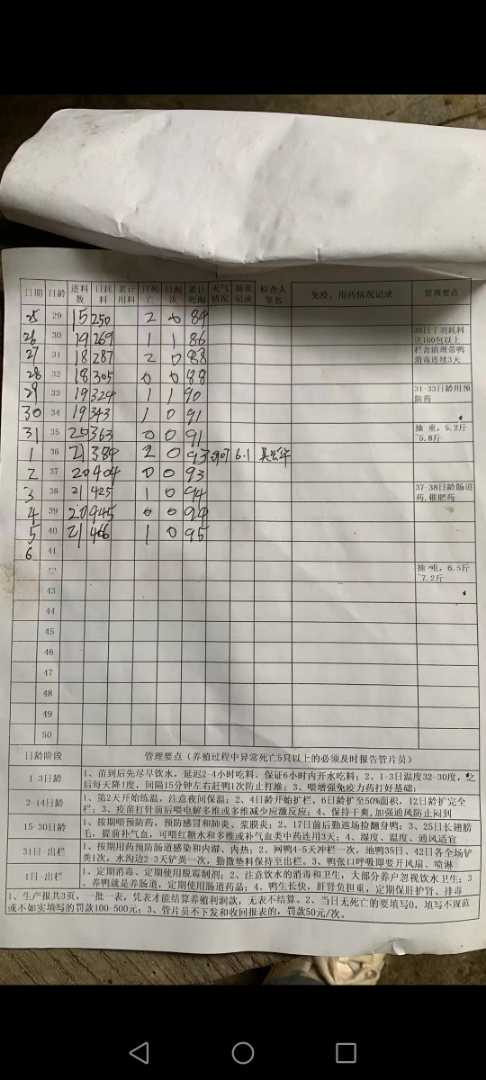 日期 日龄 进料数 日耗料 累计用料 日死亡 日淘汰 累计死淘 天气情况 抽重记录 检查人签名 免疫、用药情况记录 管理要点
25 29 15 250 2 0 84
26 30 19 269 1 1 86
27 31 18 287 2 0 88
28 32 18 305 0 0 88
29 33 19 324 1 1 90 31-33日龄用预防药
30 34 19 343 1 0 91
31 35 20 363 0 0 91 抽重，5.2斤-5.8斤
1 36 21 384 2 0 93 6.1
2 37 20 404 0 0 93
3 38 21 425 1 0 94 37-38日龄肠道药、催肥药
4 39 20 445 0 0 94
5 40 21 466 1 0 95
6 41
42 抽重，6.5斤-7.2斤
43
44
45
46
47
48
49
50
日龄阶段 管理要点（养殖过程中异常死亡5只以上的必须及时报告管片员）
1-3日龄 1、苗到后先尽早饮水，延迟2-4小时吃料，保证6小时内开水吃料；2、1-3日温度32-30度，之后每天降1度，间隔15分钟左右赶鸭1次防止打堆；3、喂增强免疫力药打好基础；
2-14日龄 1、第2天开始练温，注意夜间保温；2、4日龄开始扩栏，6日龄扩至50%面积，12日龄扩完全栏；3、疫苗打针前后喂电解多维或多维减少应激反应；4、保持干爽，加强通风防止闷到
15-30日龄 1、按期喂预防药，预防感冒和肺炎、浆膜炎；2、17日前后勤巡场捡翻身鸭；3、25日长翅膀毛，提前补气血，可喂红糖水和多维或补气血类中药连用3天；4、湿度、温度、通风适宜
31日-出栏 1、按期用药预防肠道感染和内滞、内热；2、网鸭4-5天冲栏一次，地鸭35日、42日各全场铲粪1次，水沟边2-3天铲粪一次，勤撒垫料保持至出栏。3、鸭张口呼吸即要开风扇、喷淋
1日-出栏 1、定期消毒、定期使用脱霉制剂；2、注意饮水的消毒和卫生，大部分养户忽视饮水卫生；3、养鸭就是养肠道，定期使用肠道药品；4、鸭生长快，肝肾负担重，定期保肝护肾、排毒
1、生产报共3页，一批一表，凭表才能结算养殖利润款，无表不结算。2、当日无死亡的要填写0，填写不规范或不如实填写的罚款100-500元；3、管片员不下发和收回报表的，罚款50元/次。